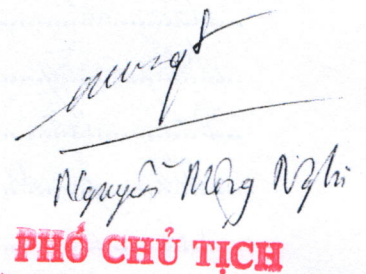 Nguyễn Mộng Nghi
PHÓ CHỦ TỊCH